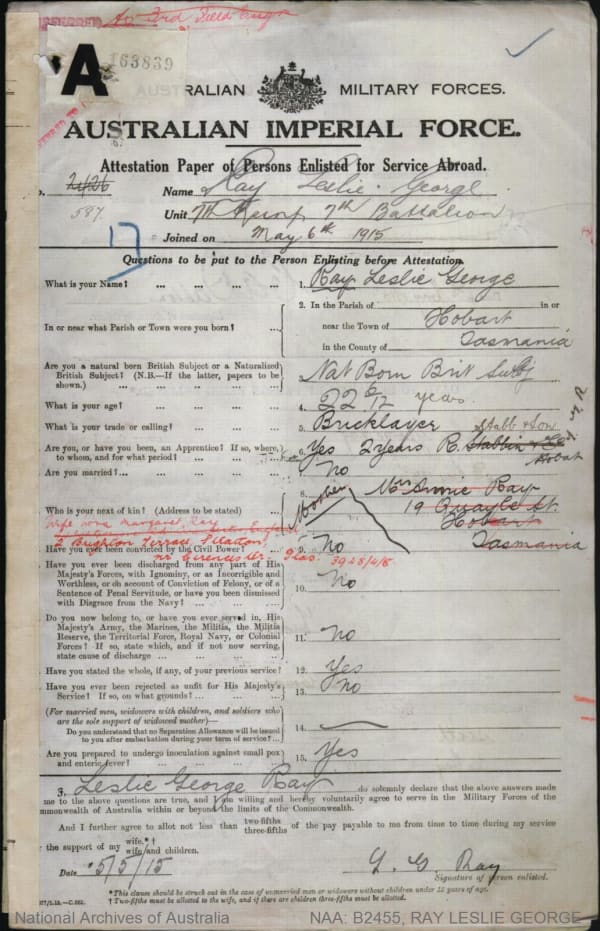 To 3rd Field Engrs
A 163839
AUSTRALIAN MILITARY FORCES.
AUSTRALIAN IMPERIAL FORCE.
Attestation Paper of Persons Enlisted for Service Abroad.
2426
597
Name Ray Leslie George
Unit 7th Reinf 7th Battalion
Joined on May 6th 1915
Questions to be put to the Person Enlisting before Attestation.
What is your Name? ... ... ... ... 1. Ray Leslie George
In or near what Parish or Town were you born? ... 2. In the Parish of in or
near the Town of Hobart
in the County of Tasmania
Are you a natural born British Subject or a Naturalized
British Subject? (N.B.—If the latter, papers to be
shown.) 3. Nat Born Brit Subj
What is your age? 4. 22 6/12 years
What is your trade or calling? 5. Bricklayer
Are you, or have you been, an Apprentice? If so, where,
to whom, and for what period? 6. Yes 2 years R. Stabb & Son
Hobart
Are you married? 7. No
Who is your next of kin? (Address to be stated) 8. Mother Mrs Annie Ray
19 Quayle St.
Hobart
Tasmania
Wife Margaret Ray
2 Brighton Terrace Stratton
nr Cirencester. Glos. 3928/4/8
Have you ever been convicted by the Civil Power? 9. No
Have you ever been discharged from any part of His
Majesty's Forces, with Ignominy, or as Incorrigible and
Worthless, or on account of Conviction of Felony, or of a
Sentence of Penal Servitude, or have you been dismissed
with Disgrace from the Navy? 10. No
Do you now belong to, or have you ever served in, His
Majesty's Army, the Marines, the Militia, the Militia
Reserve, the Territorial Force, Royal Navy, or Colonial
Forces? If so, state which, and if not now serving,
state cause of discharge 11. No
Have you stated the whole, if any, of your previous service? 12. Yes
Have you ever been rejected as unfit for His Majesty's
Service? If so, on what grounds? 13. No
(For married men, widowers with children, and soldiers who
are the sole support of widowed mother)—
Do you understand that no Separation Allowance will be issued
to you after embarkation during your term of service? 14.
Are you prepared to undergo inoculation against small pox
and enteric fever? 15. Yes
I, Leslie George Ray do solemnly declare that the above answers made
me to the above questions are true, and I am willing and hereby voluntarily agree to serve in the Military Forces of the
mmonwealth of Australia within or beyond the limits of the Commonwealth.
And I further agree to allot not less than two-fifths
three-fifths of the pay payable to me from time to time during my service
the support of my wife.*†
wife and children.
Date 5/5/15 L. G Ray
Signature of person enlisted.
*This clause should be struck out in the case of unmarried men or widowers without children under 18 years of age.
† Two-fifths must be allotted to the wife, and if there are children three-fifths must be allotted.
National Archives of Australia NAA: B2455, RAY LESLIE GEORGE